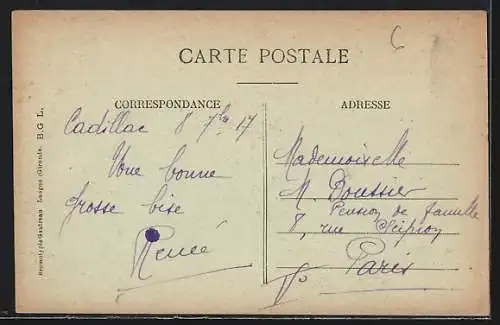 CARTE POSTALE
CORRESPONDANCE
Cadillac 8 7bre 17
Une bonne
grosse bise
Renée
ADRESSE
Mademoiselle
M. Boussier
Pension de famille
8, rue Scipion
Paris
Langon (Gironde) B.G L.